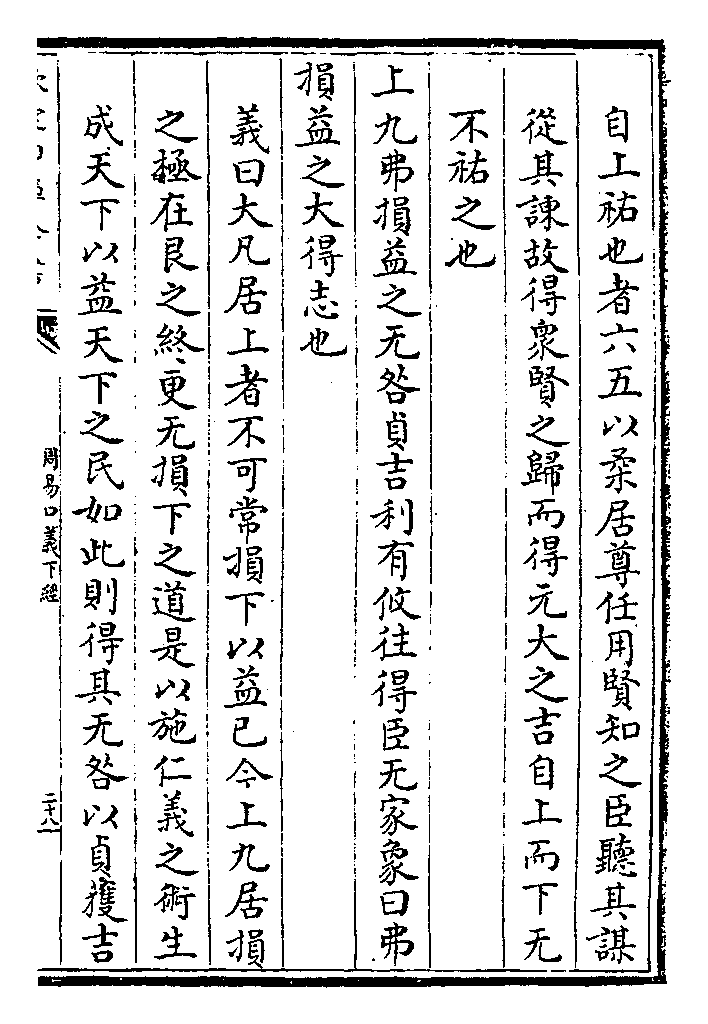 自上祐也者六五以柔居尊任用賢知之臣聽其謀
從其諫故得衆賢之歸而得元大之吉自上而下无
不祐之也
上九弗損益之无咎貞吉利有攸往得臣无家象曰弗
損益之大得志也
義曰大凡居上者不可常損下以益已今上九居損
之極在艮之終更无損下之道是以施仁義之術生
成天下以益天下之民如此則得其无咎以貞獲吉
周易口義下經
二十八